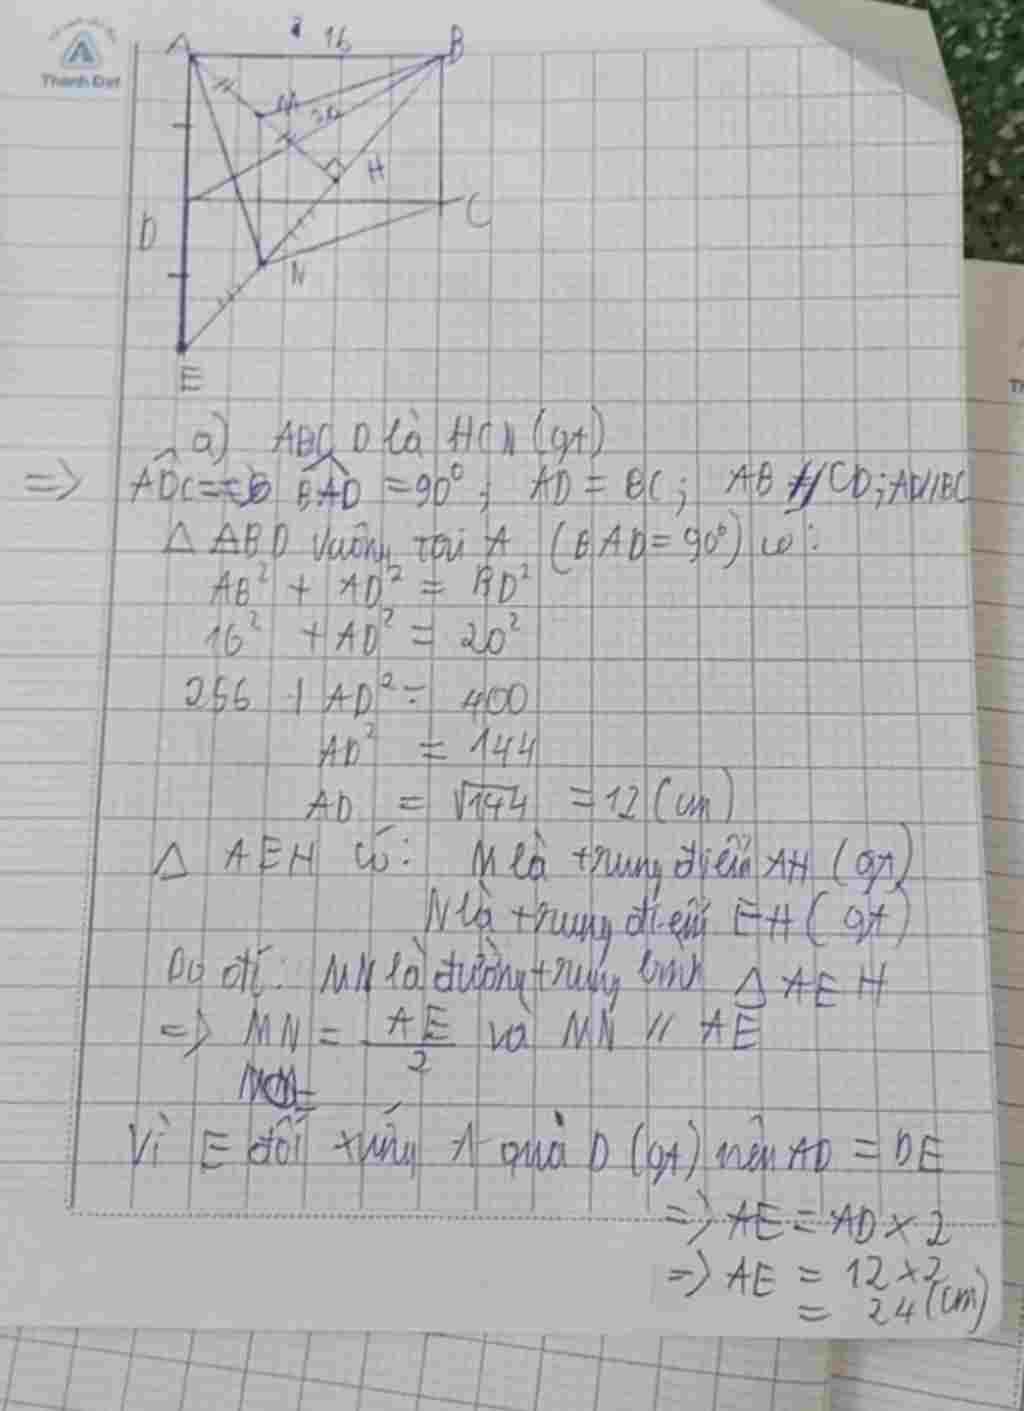 Thành Đạt
A 16 B
M 20
H
D C
N
E
a) ABCD là HCN (gt)
=> ADC = BAD = 90°; AD = BC; AB // CD; AD//BC
Δ ABD vuông tại A (BAD = 90°) có:
AB² + AD² = BD²
16² + AD² = 20²
256 + AD² = 400
AD² = 144
AD = √144 = 12 (cm)
Δ AEH có: M là trung điểm AH (gt)
N là trung điểm EH (gt)
Do đó: MN là đường trung bình Δ AEH
=> MN = AE/2 và MN // AE
Vì E đối xứng A qua D (gt) nên AD = DE
=> AE = AD × 2
=> AE = 12 × 2
= 24 (cm)